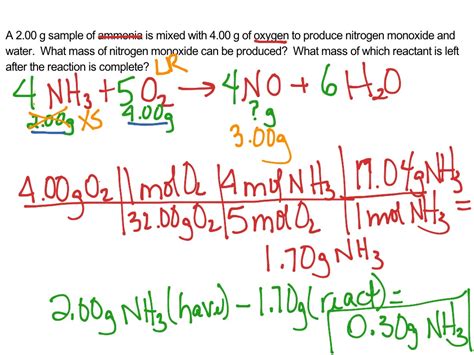 A 2.00 g sample of ammonia is mixed with 4.00 g of oxygen to produce nitrogen monoxide and
water. What mass of nitrogen monoxide can be produced? What mass of which reactant is left
after the reaction is complete?
LR
4 NH₃ + 5 O₂ → 4 NO + 6 H₂O
2.00g XS 4.00g ? g
3.00g
4.00g O₂ | 1 mol O₂ | 4 mol NH₃ | 17.04g NH₃ =
32.00g O₂ | 5 mol O₂ | 1 mol NH₃
1.70g NH₃
2.00g NH₃ (have) – 1.70g (react) =
0.30g NH₃